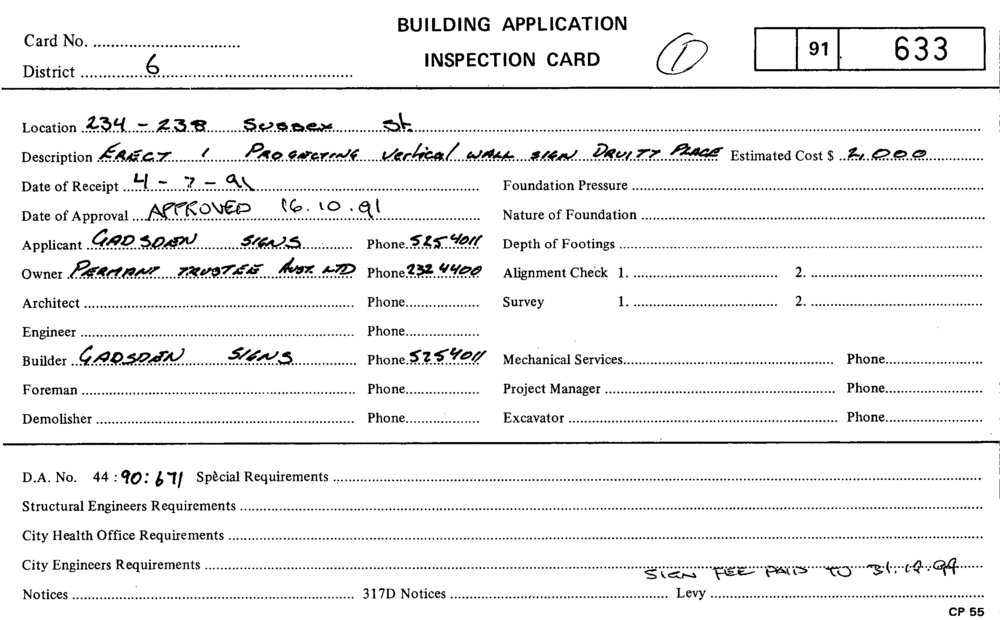 BUILDING APPLICATION
INSPECTION CARD
Card No.
District 6
1
91 633
Location 234 - 238 Sussex St.
Description ERECT 1 PROGECTING Vertical WALL SIGN DRUITT PLACE Estimated Cost $ 2,000
Date of Receipt 4 - 7 - 91
Foundation Pressure
Date of Approval APPROVED 16.10.91
Nature of Foundation
Applicant GADSDEN SIGNS Phone 525 4011
Depth of Footings
Owner PERMANT TRUSTEE AUST. LTD Phone 232 4400
Alignment Check 1. 2.
Architect Phone
Survey 1. 2.
Engineer Phone
Builder GADSDEN SIGNS Phone 525 4011
Mechanical Services Phone
Foreman Phone
Project Manager Phone
Demolisher Phone
Excavator Phone
D.A. No. 44 : 90 : 671 Special Requirements
Structural Engineers Requirements
City Health Office Requirements
City Engineers Requirements
SIGN FEE PAID TO 31.12.99
Notices 317D Notices Levy
CP 55